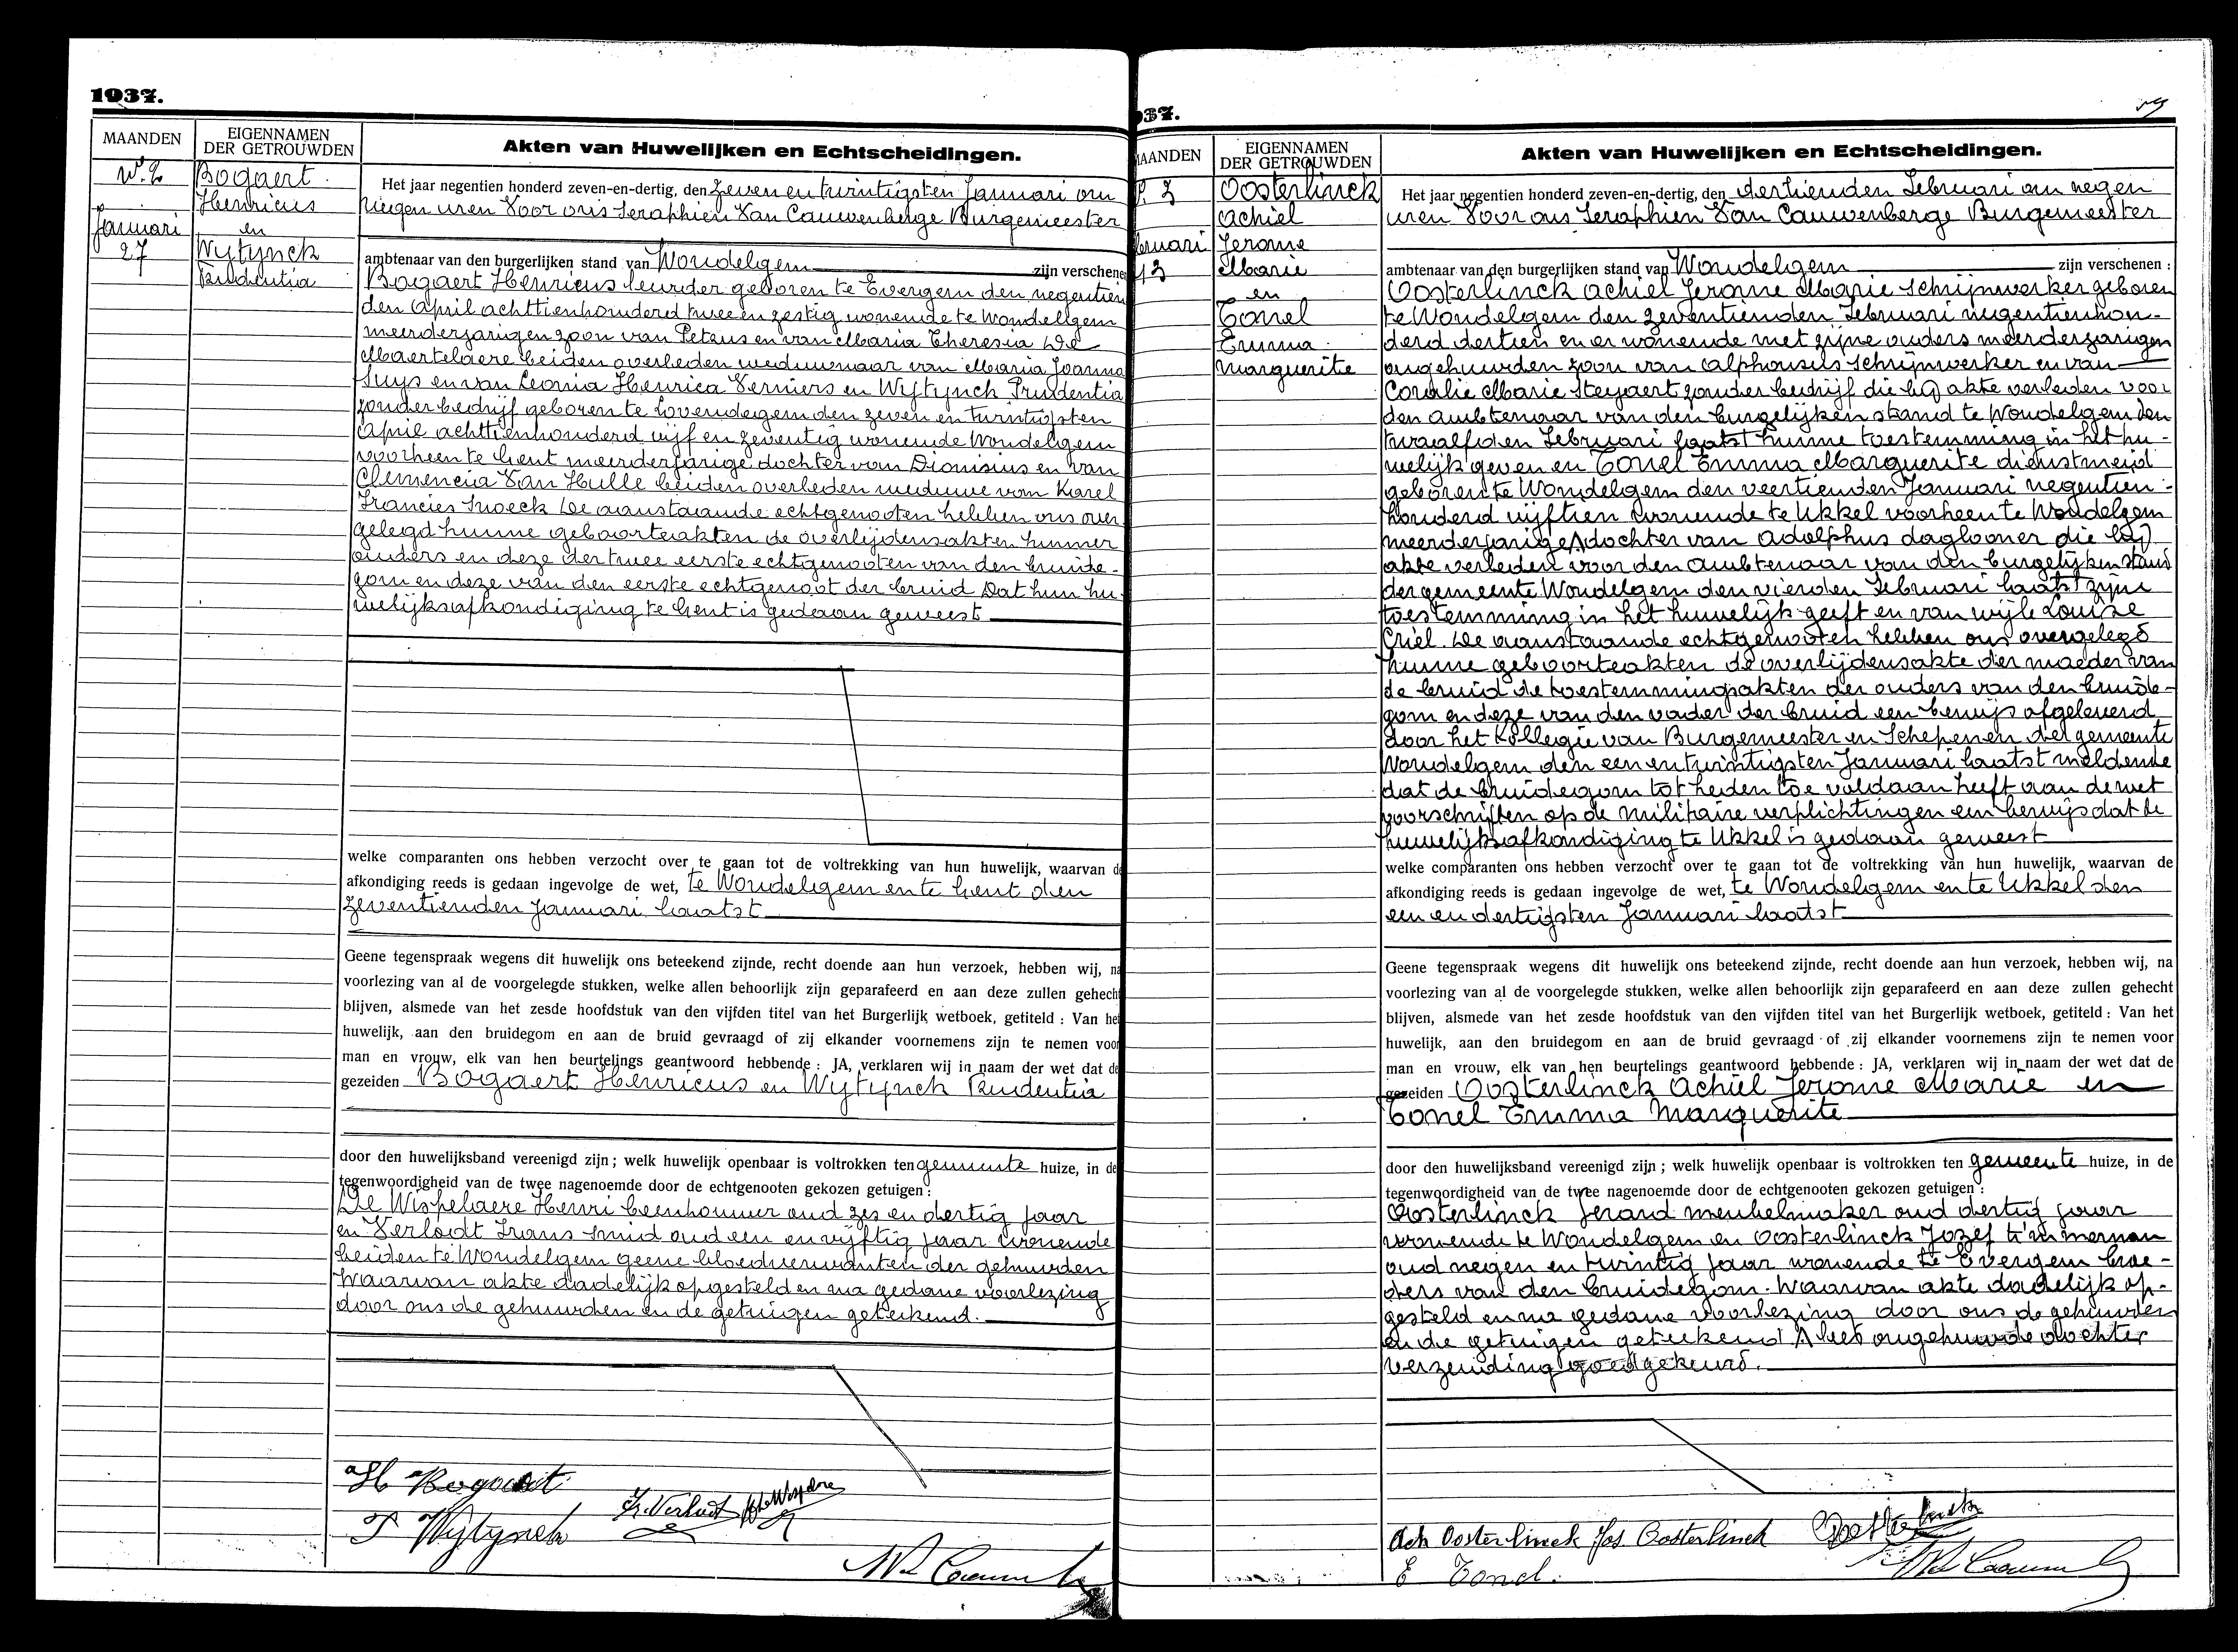 1937.
MAANDEN
EIGENNAMEN
DER GETROUWDEN
Akten van Huwelijken en Echtscheidingen.
N. 2
Januari
27
Bogaert
Henricus
en
Wytynck
Prudentia
Het jaar negentien honderd zeven-en-dertig, den zeven en twintigsten Januari om
negen uren Voor ons Seraphien Van Cauwenberge Burgemeester
ambtenaar van den burgerlijken stand van Wondelgem zijn verschenen
Bogaert Henricus leurder geboren te Evergem den negentien
den April achttienhonderd twee en zestig wonende te Wondelgem
meerderjarigen zoon van Petrus en van Maria Theresia De
Maertelaere beiden overleden weduwnaar van Maria Joanna
Suys en van Leonia Henrica Verniers en Wytynck Prudentia
zonder bedrijf geboren te Lovendegem den zeven en twintigsten
April achttienhonderd vijf en zeventig wonende Wondelgem
voorheen te Gent meerderjarige dochter van Dionisius en van
Clemencia Van Hulle beiden overleden weduwe van Karel
Francies Snoeck De aanstaande echtgenooten hebben ons over
gelegd hunne geboorteakten de overlijdensakten hunner
ouders en deze der twee eerste echtgenooten van den bruide-
gom en deze van den eerste echtgenoot der bruid Dat hun hu-
welijksafkondiging te Gent is gedaan geweest
welke comparanten ons hebben verzocht over te gaan tot de voltrekking van hun huwelijk, waarvan de
afkondiging reeds is gedaan ingevolge de wet, te Wondelgem en te Gent den
zeventienden Januari laatst
Geene tegenspraak wegens dit huwelijk ons beteekend zijnde, recht doende aan hun verzoek, hebben wij, na
voorlezing van al de voorgelegde stukken, welke allen behoorlijk zijn geparafeerd en aan deze zullen gehecht
blijven, alsmede van het zesde hoofdstuk van den vijfden titel van het Burgerlijk wetboek, getiteld : Van het
huwelijk, aan den bruidegom en aan de bruid gevraagd of zij elkander voornemens zijn te nemen voor
man en vrouw, elk van hen beurtelings geantwoord hebbende : JA, verklaren wij in naam der wet dat de
gezeiden Bogaert Henricus en Wytynck Prudentia
door den huwelijksband vereenigd zijn ; welk huwelijk openbaar is voltrokken ten gemeente huize, in de
tegenwoordigheid van de twee nagenoemde door de echtgenooten gekozen getuigen :
De Wispelaere Henri beenhouwer oud zes en dertig jaar
en Verloodt Frans smid oud een en vijftig jaar wonende
beiden te Wondelgem geene bloedverwanten der gehuwden
Waarvan akte dadelijk opgesteld en na gedane voorlezing
door ons de gehuwden en de getuigen geteekend.
H Bogaert
P Wytynck
37.
MAANDEN
EIGENNAMEN
DER GETROUWDEN
Akten van Huwelijken en Echtscheidingen.
3
bruari
13
Oosterlinck
Achiel
Jerome
Marie
en
Tonel
Emma
Marguerite
Het jaar negentien honderd zeven-en-dertig, den dertienden Februari om negen
uren Voor ons Seraphien Van Cauwenberge Burgemeester
ambtenaar van den burgerlijken stand van Wondelgem zijn verschenen :
Oosterlinck Achiel Jerome Marie schrijnwerker geboren
te Wondelgem den zeventienden Februari negentienhon-
derd dertien en er wonende met zijne ouders meerderjarigen
ongehuwden zoon van Alphonsus schrijnwerker en van
Coralie Marie Steyaert zonder bedrijf die bij akte verleden voor
den ambtenaar van den burgelijken stand te Wondelgem den
twaalfden Februari laatst hunne toestemming in het hu-
welijk geven en Tonel Emma Marguerite dienstmeid
geboren te Wondelgem den veertienden Januari negentien-
honderd vijftien wonende te Ukkel voorheen te Wondelgem
meerderjarige Λ dochter van Adolphus daglooner die bij
akte verleden voor den ambtenaar van den burgelijken stand
der gemeente Wondelgem den vierden Februari laatst zijne
toestemming in het huwelijk geeft en van wijle Louise
Criel. De aanstaande echtgenooten hebben ons overgelegd
hunne geboorteakten de overlijdensakte der moeder van
de bruid de toestemmingsakten der ouders van den bruide-
gom en deze van den vader der bruid een bewijs afgeleverd
door het Kollegie van Burgemeester en Schepenen der gemeente
Wondelgem den een en twintigsten Januari laatst meldende
dat de bruidegom tot heden toe voldaan heeft aan de wet
voorschriften op de militaire verplichtingen een bewijs dat de
huwelijksafkondiging te Ukkel is gedaan geweest
welke comparanten ons hebben verzocht over te gaan tot de voltrekking van hun huwelijk, waarvan de
afkondiging reeds is gedaan ingevolge de wet, te Wondelgem en te Ukkel den
een en dertigsten Januari laatst
Geene tegenspraak wegens dit huwelijk ons beteekend zijnde, recht doende aan hun verzoek, hebben wij, na
voorlezing van al de voorgelegde stukken, welke allen behoorlijk zijn geparafeerd en aan deze zullen gehecht
blijven, alsmede van het zesde hoofdstuk van den vijfden titel van het Burgerlijk wetboek, getiteld : Van het
huwelijk, aan den bruidegom en aan de bruid gevraagd of zij elkander voornemens zijn te nemen voor
man en vrouw, elk van hen beurtelings geantwoord hebbende : JA, verklaren wij in naam der wet dat de
gezeiden Oosterlinck Achiel Jerome Marie en
Tonel Emma Marguerite
door den huwelijksband vereenigd zijn ; welk huwelijk openbaar is voltrokken ten gemeente huize, in de
tegenwoordigheid van de twee nagenoemde door de echtgenooten gekozen getuigen :
Oosterlinck Jerard meubelmaker oud dertig jaar
wonende te Wondelgem en Oosterlinck Jozef timmerman
oud negen en twintig jaar wonende te Evergem broe-
ders van den bruidegom. Waarvan akte dadelijk op-
gesteld en na gedane voorlezing door ons de gehuwden
en de getuigen geteekend Λ lees ongehuwde dochter
verzending goedgekeurd.
Ach Oosterlinck Jos. Oosterlinck
E Tonel.